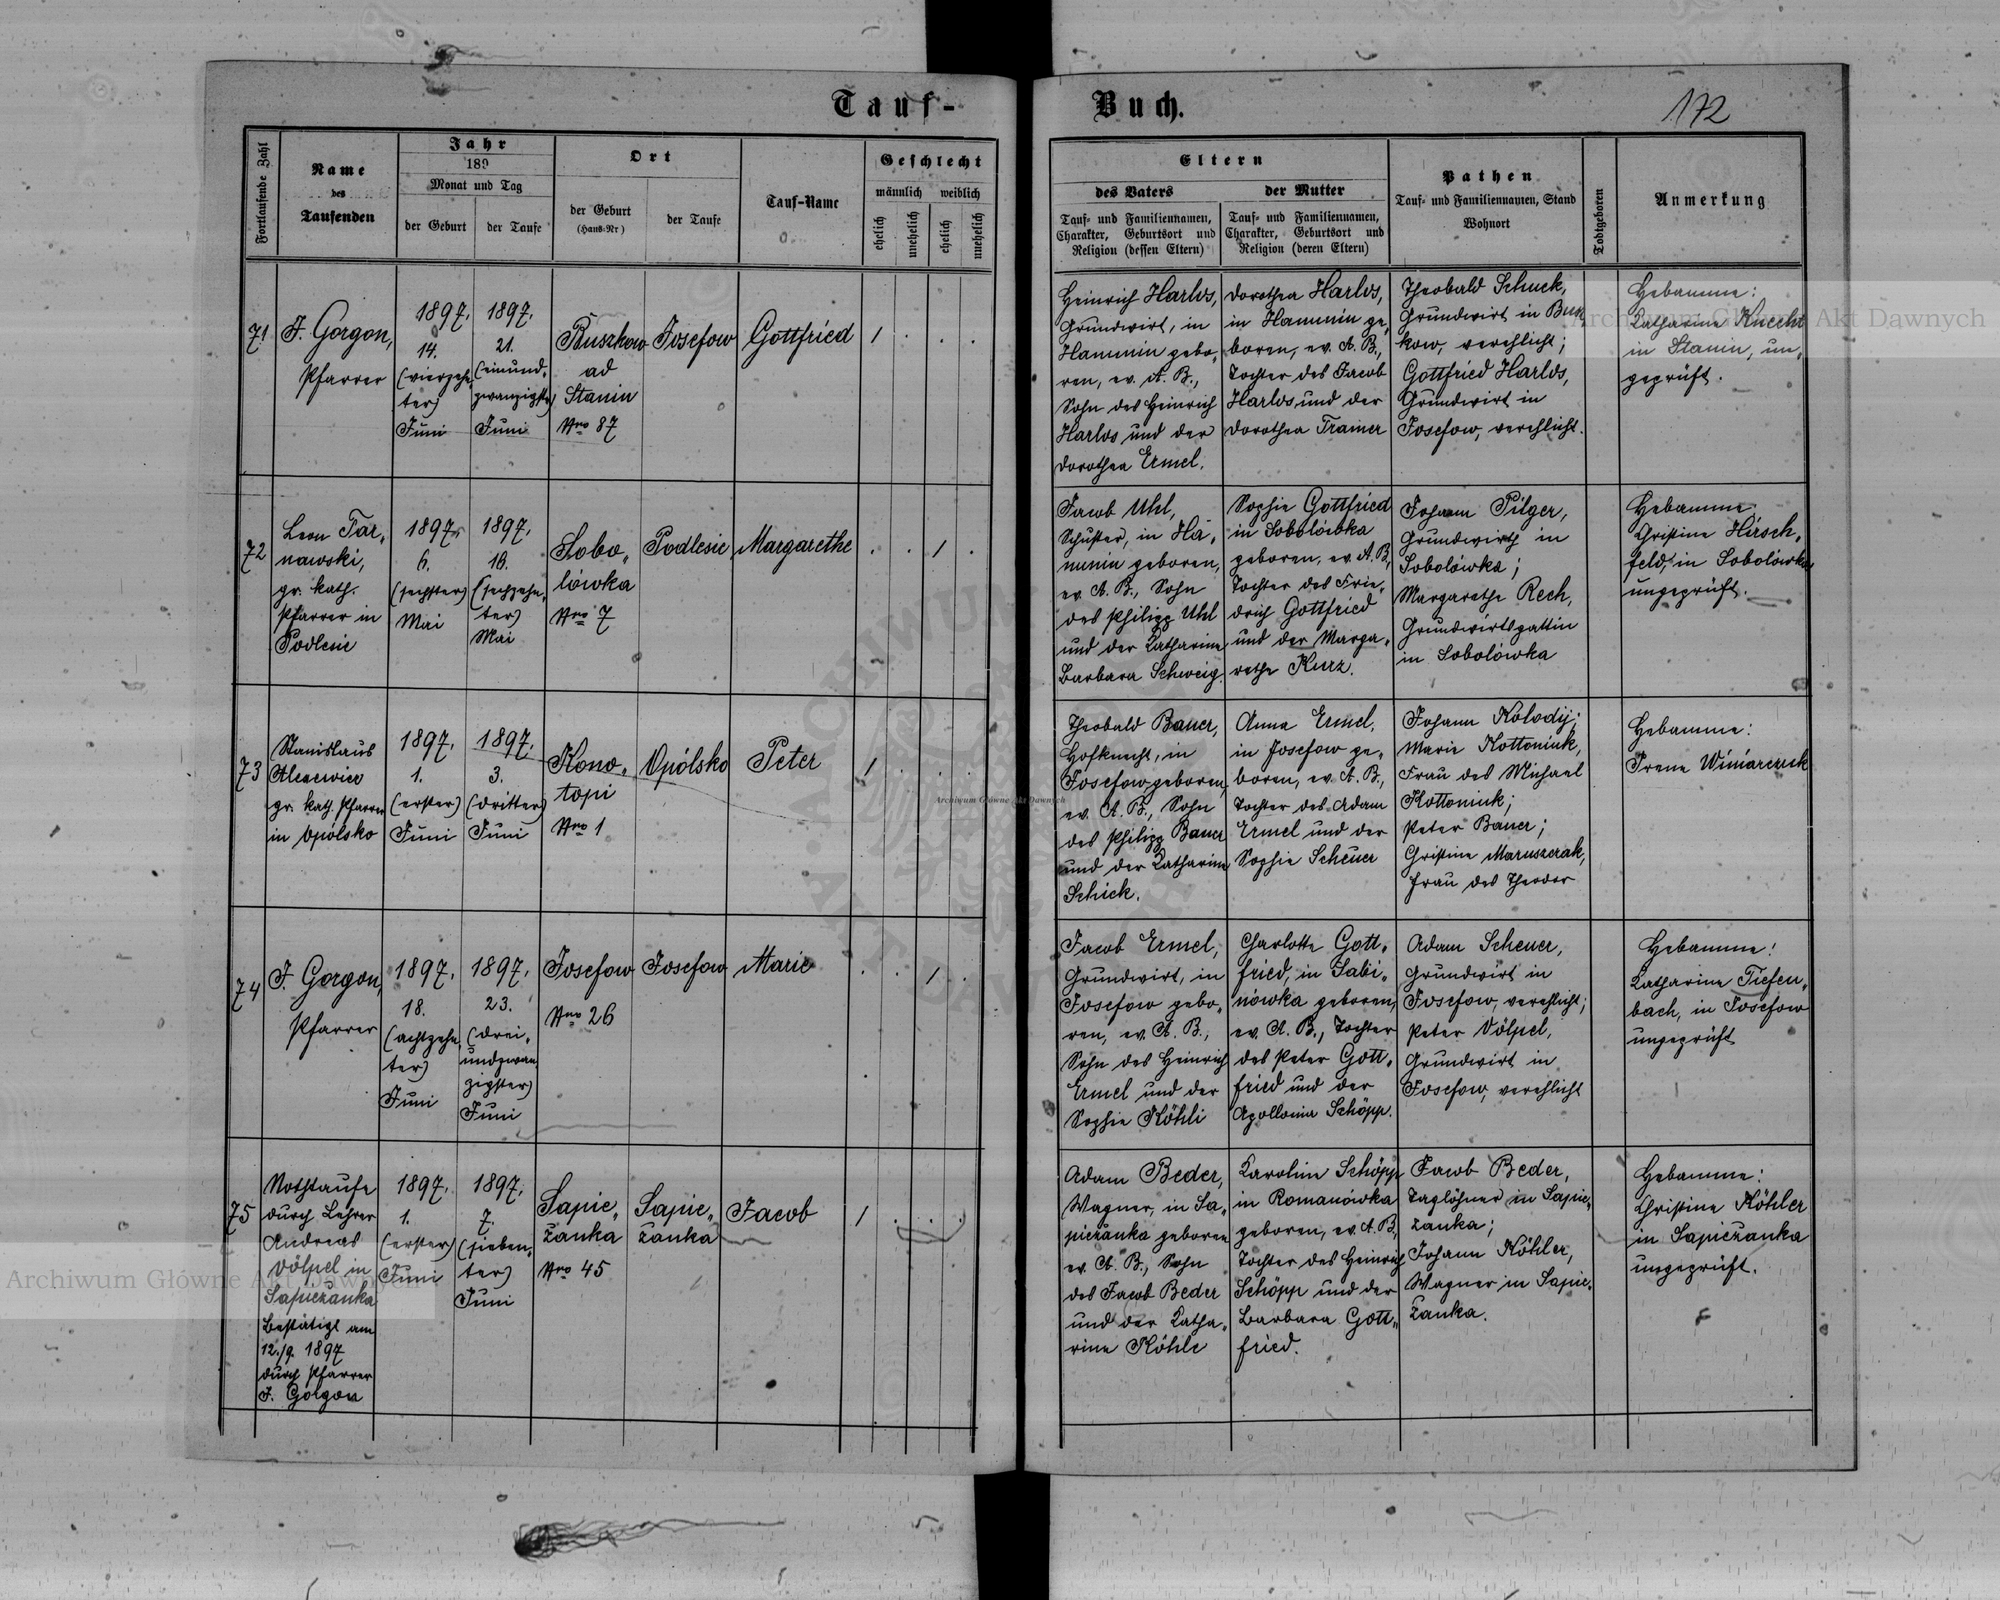 Tauf-
Buch.
172
Fortlaufende Zahl
Name
des
Taufenden
Jahr
189
Monat und Tag
der Geburt
der Taufe
Ort
der Geburt
(Haus-Nr)
der Taufe
Tauf-Name
Geschlecht
männlich
weiblich
ehelich
unehelich
ehelich
unehelich
Eltern
des Vaters
Tauf- und Familiennamen,
Charakter, Geburtsort und
Religion (dessen Eltern)
der Mutter
Tauf- und Familiennamen,
Charakter, Geburtsort und
Religion (deren Eltern)
Pathen
Tauf- und Familiennamen, Stand
Wohnort
Todtgeboren
Anmerkung
71
J. Gorgon,
Pfarrer
1897.
14.
(vierzehn
ter)
Juni
1897.
21.
(einund-
zwanzigster)
Juni
Buszkow
ad
Stanin
Nro 87
Josefow
Gottfried
1 . . .
Heinrich Harlos,
Grundwirt, in
Hanunin gebo-
ren, ev. A. B.,
Sohn des Heinrich
Harlos und der
Dorothea Ermel.
Dorothea Harlos,
in Hanunin ge-
boren, ev. A. B.,
Tochter des Jacob
Harlos und der
Dorothea Tramer
Theobald Schuck,
Grundwirt in Busz
kow, verehlicht;
Gottfried Harlos,
Grundwirt in
Josefow, verehlicht.
Hebamme:
Katharina Knecht
in Stanin, un-
geprüft.
72
Leon Tar-
nawski,
gr. kath.
Pfarrer in
Podlesie
1897.
6.
(sechster)
Mai
1897.
16.
(sechzehn-
ter)
Mai
Sobo-
lówka
Nro 7
Podlesie
Margarethe
. . 1 .
Jacob Uhl,
Schuster, in Ha-
nunin geboren,
ev. A. B., Sohn
des Philipp Uhl
und der Katharina
Barbara Schweig.
Sophie Gottfried
in Sobolówka
geboren, ev. A. B.
Tochter des Frie-
drich Gottfried
und der Marga-
rethe Kurz.
Johann Pilger,
Grundwirth in
Sobolówka;
Margarethe Rech,
Grundwirtsgattin
in Sobolówka
Hebamme
Christine Hirsch-
feld, in Sobolówka
ungeprüft.
73
Stanislaus
Alexewicz
gr. kath. Pfarrer
in Opólsko
1897.
1.
(erster)
Juni
1897.
3.
(dritter)
Juni
Kono-
topi
Nro 1
Opólsko
Peter
1 . . .
Theobald Bauer,
Hofknecht, in
Josefow geboren,
ev. A. B., Sohn
des Philipp Bauer
und der Katharina
Schick.
Anna Ermel,
in Josefow ge-
boren, ev. A. B.,
Tochter des Adam
Ermel und der
Sophie Scheuer
Johann Kolodij;
Marie Kottoniuk,
Frau des Michael
Kottoniuk;
Peter Bauer;
Christine Maruszczak,
Frau des Theodor
Hebamme:
Irene Winiarczuk
74
J. Gorgon,
Pfarrer
1897.
18.
(achtzehn
ter)
Juni
1897.
23.
(drei-
undzwan
zigster)
Juni
Josefow
Nro 26
Josefow
Marie
. . 1 .
Jacob Ermel,
Grundwirt, in
Josefow gebo-
ren, ev. A. B.,
Sohn des Heinrich
Ermel und der
Sophie Köhli
Charlotte Gott-
fried, in Sabi-
nówka geboren,
ev. A. B., Tochter
des Peter Gott-
fried und der
Apollonia Schöpp.
Adam Scheuer,
Grundwirt in
Josefow, verehlicht;
Peter Völpel,
Grundwirt in
Josefow, verehlicht
Hebamme!
Katharina Tiefen-
bach, in Josefow
ungeprüft
75
Nothtaufe
durch Lehrer
Andreas
Völpel in
Sapieżanka
Bestätigt am
12./9. 1897
durch Pfarrer
J. Gorgon
1897.
1.
(erster)
Juni
1897.
7.
(sieben-
ter)
Juni
Sapie-
żanka
Nro 45
Sapie-
żanka
Jacob
1 . . .
Adam Beder,
Wagner, in Sa-
pieżanka geboren
ev. A. B., Sohn
des Jacob Beder
und der Katha-
rina Köhle
Karolina Schöpp
in Romanówka
geboren, ev. A. B.
Tochter des Heinrich
Schöpp und der
Barbara Gott-
fried.
Jacob Beder,
Taglöhner in Sapie-
żanka;
Johann Köhler,
Wagner in Sapie-
żanka.
Hebamme:
Christine Köhler
in Sapieżanka
ungeprüft.
Archiwum Główne Akt Dawnych
Archiwum Główne Akt Dawnych
Archiwum Główne Akt Dawnych